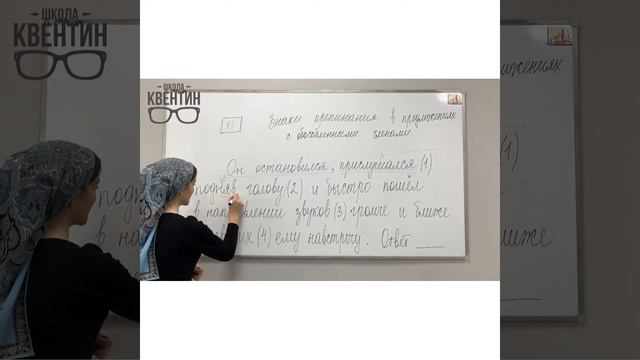 ШКОЛА
КВЕНТИН
ШКОЛА
КВЕНТИН
17
Знаки препинания в предложениях
с обособленными членами
Он остановился, прислушался (1)
подняв голову (2) и быстро пошёл
в направлении звуков (3) громче и ближе
(4) ему навстречу. Ответ ____